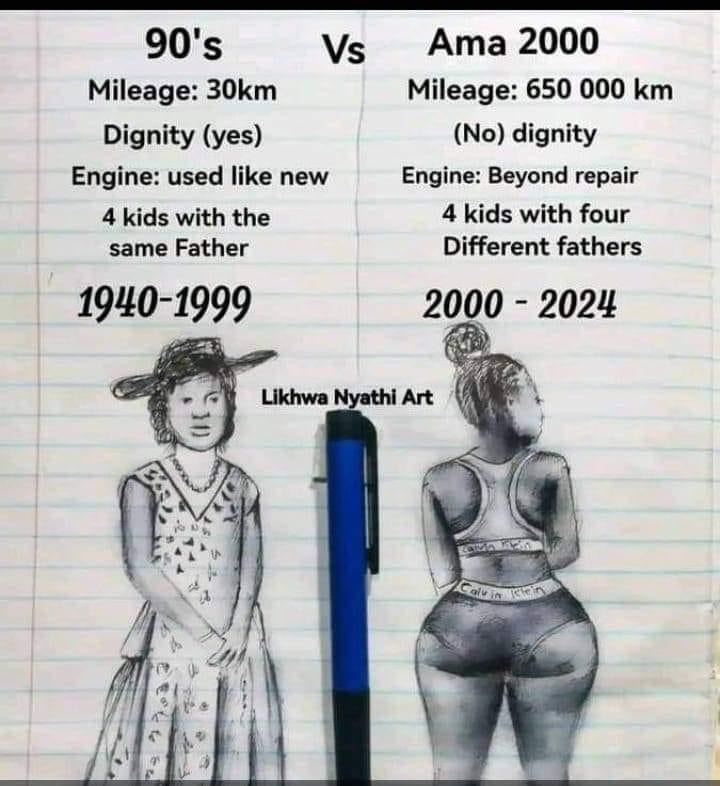 90's Vs Ama 2000
Mileage: 30km
Dignity (yes)
Engine: used like new
4 kids with the
same Father
1940-1999
Mileage: 650 000 km
(No) dignity
Engine: Beyond repair
4 kids with four
Different fathers
2000 - 2024
Likhwa Nyathi Art
Calvin Klein
Calvin Klein